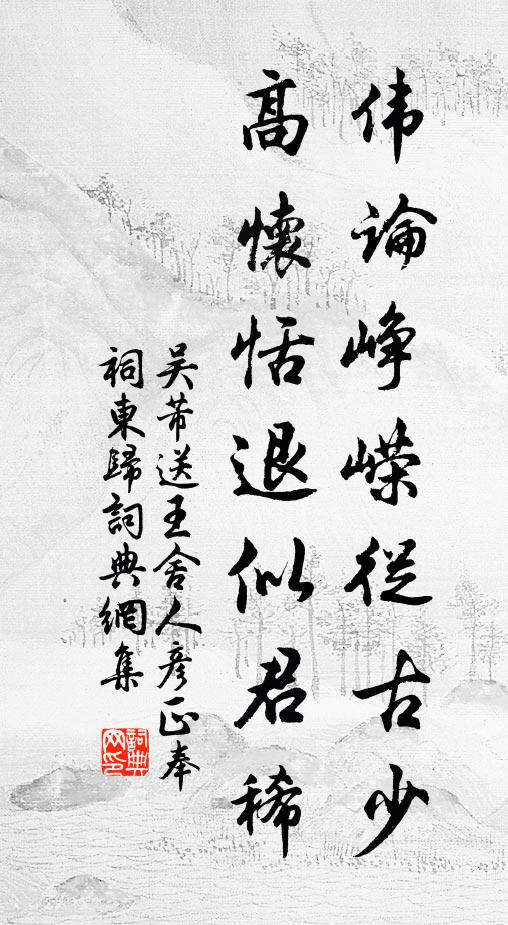 伟论峥嵘從古少
高懷恬退似君稀
吴芾送王舍人彦正奉
祠東歸詞典網集
詞典
网印